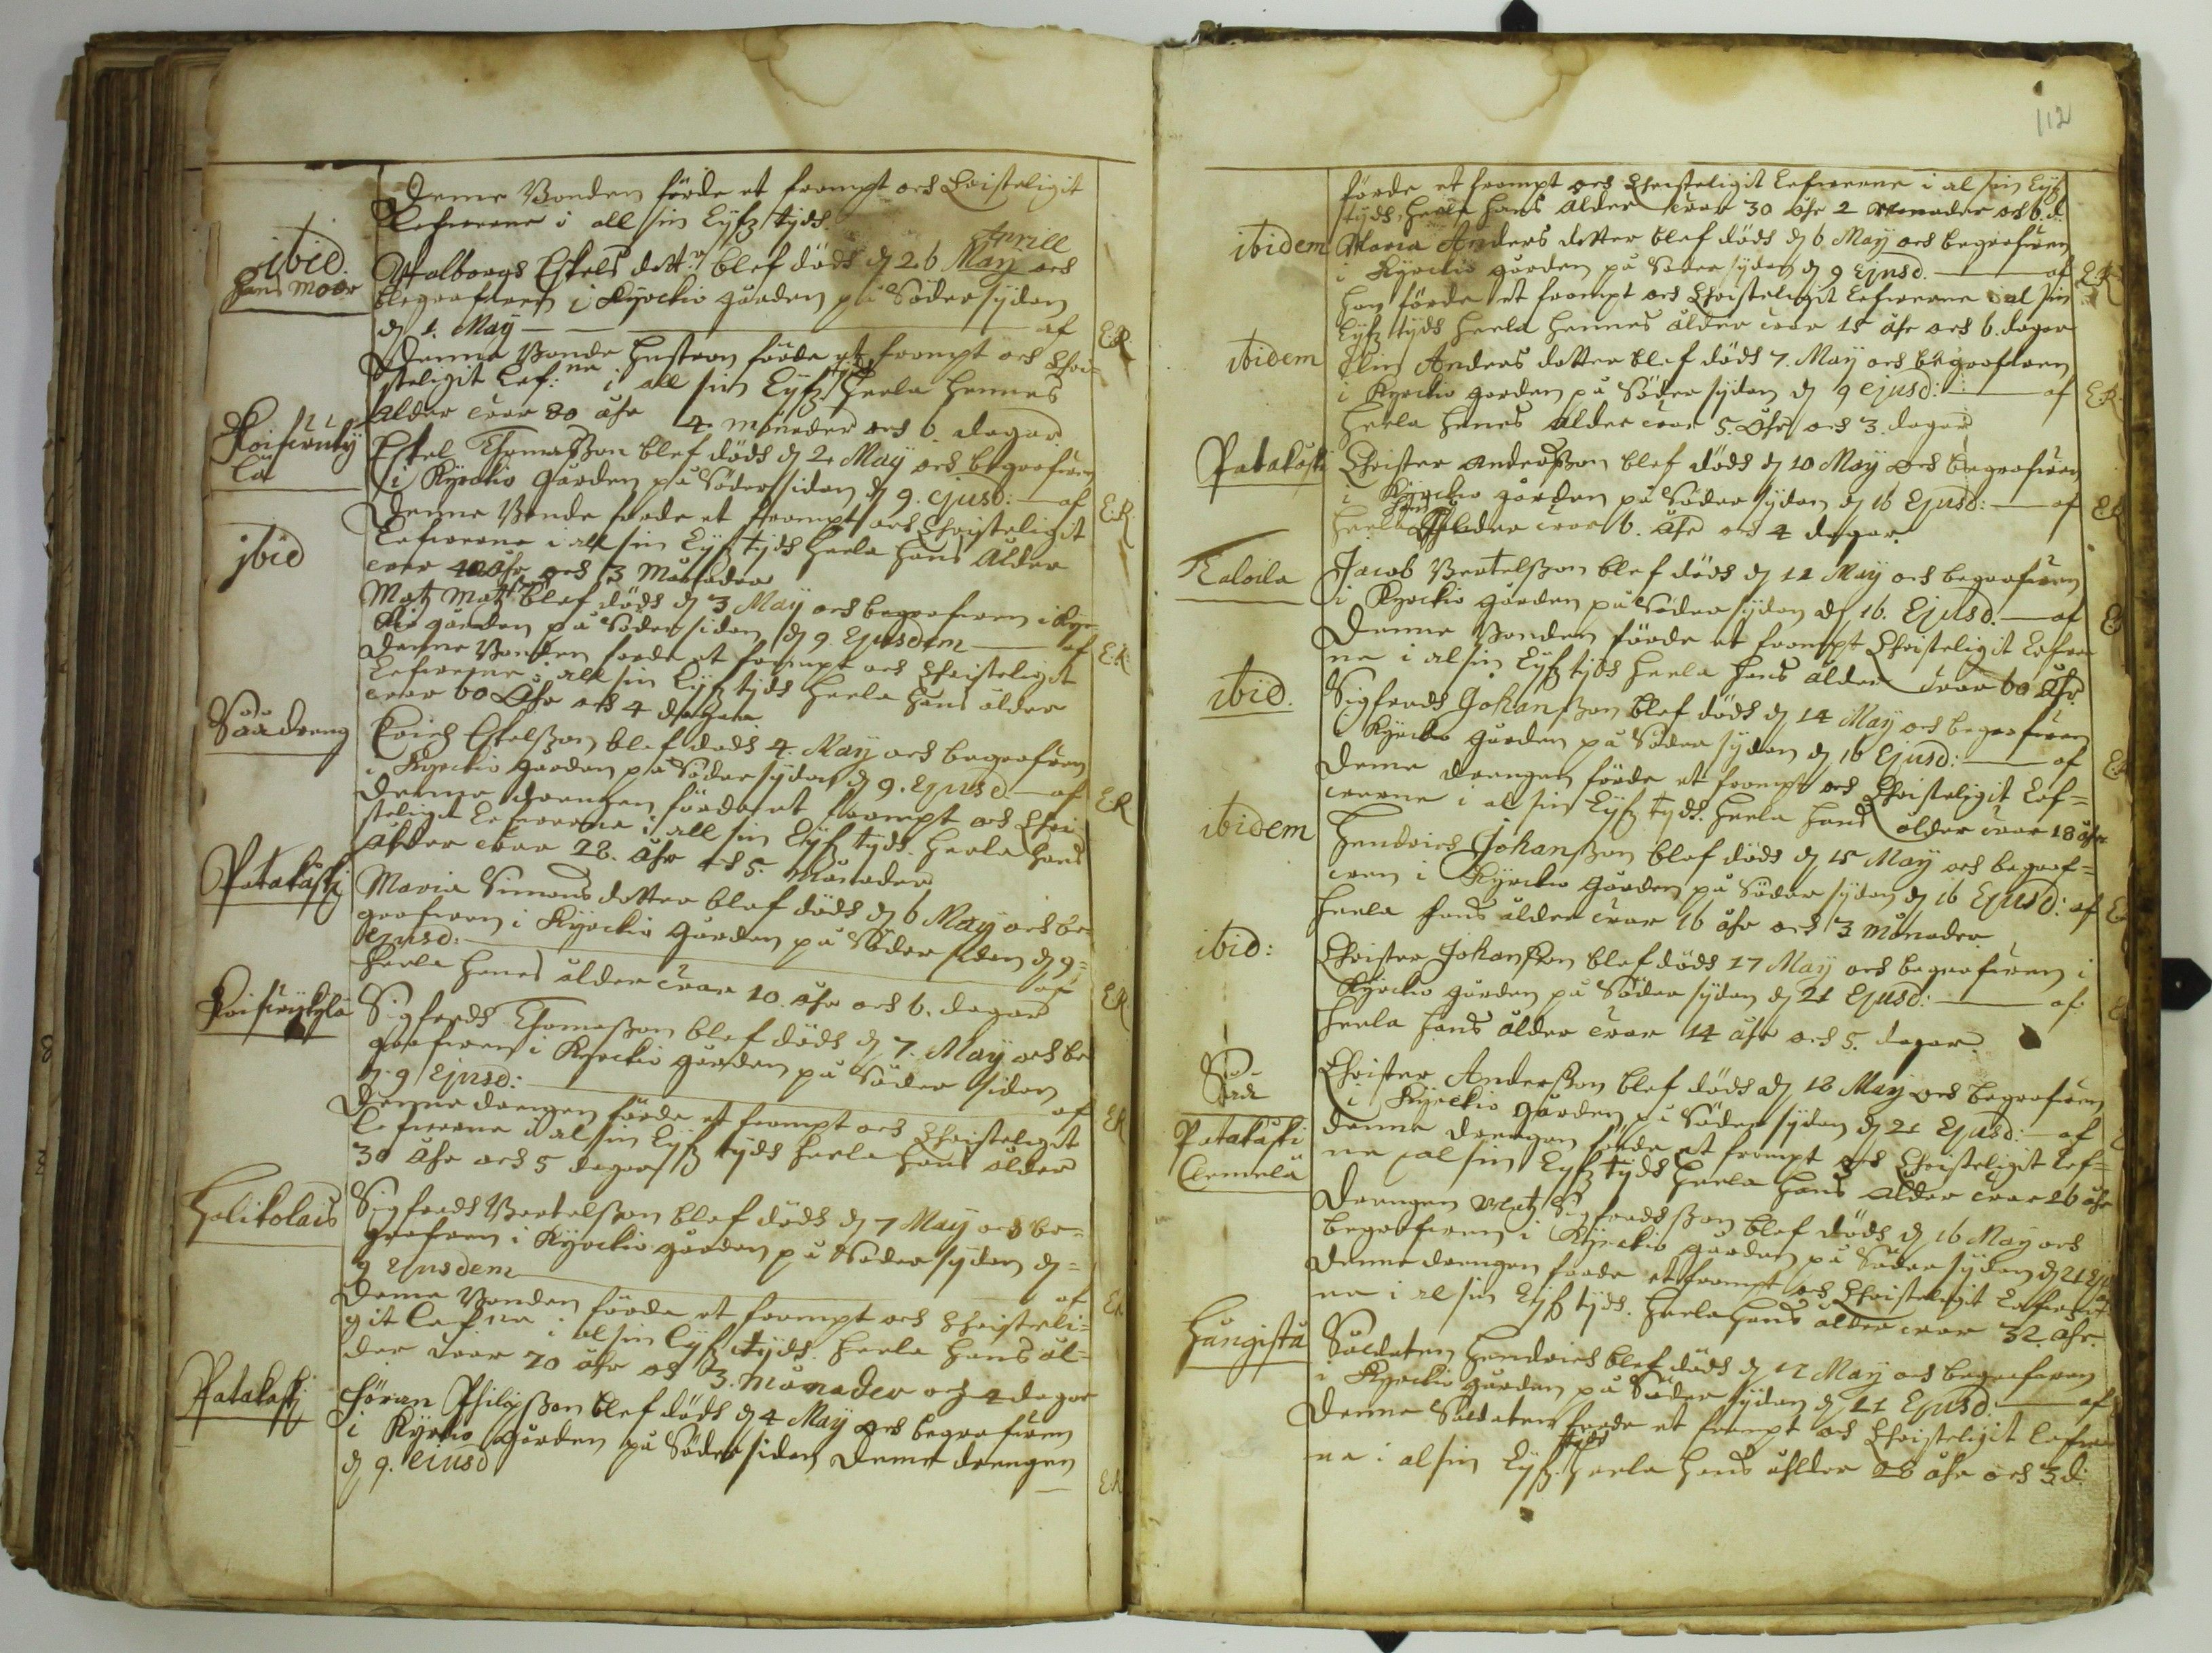 Denne Bonden förde et frompt och Christeligit
Lefwerne i all sin Lyfz tydh.
ibid.
hans moor
Aprill
Walborgh Eskels dott:r blef dödh d 26 May och
begrafwen i Kyrckio gården på Södersydan
d 1. May — af E:R
Denna Bonde hustron förde et frompt och Chri=
steligit Lef:ne i all sin Lyfz tydh heela hennes
ålder war 80 åhr 4 månader och 6. dagar
Koifwuky
lä
Eskel Thomasson blef dödh d 2 May och begrafwen
i Kyrckio gården på Södersidan d 9. ejusd: — af E:R.
Denne Bonde förde et frompt och Christeligit
Lefwerne i all sin Lyfz tydh heela hans ålder
war 40 åhr och 3 Månader
ibid
Matz Matzson blef dödh d 3 May och begrafwen i Kyr=
kio gården på Södersidan d 9. Ejusdem — af E:R:
Denne Bonden förde et frompt och Christeligit
Lefwerne i all sin Lyfz tydh heela hans ålder
war 60 åhr och 4 dagar
Såådreng
Erich Eskelsson blef dödh 4. May och begrafwen
i Kyrckio gården på Södersydan d 9. Ejusd — af ER
Denne drengen förde et frompt och Chri
steligit Lefwerne i all sin Lyfz tydh. heela hans
ålder war 28. åhr och 5. Månader
Patakåski
Maria Simons dotter blef dödh d 6 May och be
grafwen i Kyrckio gården på Södersidan d 9=
Ejusd: — af ER
heela hennes ålder war 10. åhr och 6. dagar
Koifwykylä
Sigfredh Thomasson blef dödh d 7. May och be
grafwen i Kyrckio gården på Södersidan
d. 9 Ejusd: — af ER
Denne drengen förde et frompt och Christeligit
Lefwerne i al sin Lyfz tydh heela hans ålder
30 åhr och 5 dagar
Halikolais
Sigfredh Bertelsson blef dödh d 7 May och be=
grafwen i Kyrckio gården på Södersydan d=
9 Ejusdem — af ER
Denne Bonden förde et frompt och Christeli=
git Lefne i al sin Lyfz tydh. heela hans ål=
der war 70 åhr och 3. månader och 4 dagar
Patakåski
Göran Philipsson blef dödh d 4 May och begrafwen
i Kyrckio gården på Södersidan Denne drengen
d 9. Ejusd — ER
112
förde et frompt och Christeligit Lefwerne i al sin Lyfz
tydh, heela hans ålder war 30 åhr 2 Månader och 6. d.
ibidem
Maria Anders dotter blef dödh d 6 May och begrafwen
i Kyrckio gården på Södersydan d 9 Ejusd. — af E:R
hon förde et frompt och Christeligit Lefwerne i al sin
Lyfz tydh heela hennes ålder war 15 åhr och 6. dagar
ibidem
Elin Anders dotter blef dödh 7. May och begrafwen
i Kyrckio gården på Södersydan d 9 ejusd: — af E:R.
heela hennes ålder war 5. åhr och 3. dagar
Patakåski
Christer Andersson blef dödh d 10 May och begrafwen
i Kyrckio gården på Södersydan d 16 Ejusd: — af ER
heela hans ålder war 6. åhr och 4 dagar.
Taloila
Jacob Bertelsson blef dödh d 12 May och begrafwen
i Kyrckio gården på Södersydan d 16. Ejusd. — af E
Denne Bonden förde et frompt Christeligit Lefwer
ne i al sin Lyfz tydh heela hans ålder war 60 åhr
ibid.
Sigfredh Johansson blef dödh d 14 May och begrafwen
i Kyrckio gården på Södersydan d 16 Ejusd: — af E:R
Denne drengen förde et frompt och Christeligit Lef=
werne i al sin Lyfz tydh. heela hans ålder war 18 åhr
ibidem
Hendrich Johansson blef dödh d 15 May och begraf=
wen i Kyrckio gården på Södersydan d 16 Ejusd: af E
heela hans ålder war 16 åhr och 3 Månader
ibid:
Christer Johansson blef dödh 17 May och begrafwen i
Kyrckio gården på Södersydan d 21 Ejusd: — af
heela hans ålder war 14 åhr och 5. dagar
Christer Andersson blef dödh d 18 May och begrafwen
i Kyrckio gården på Södersydan d 21 Ejusd: — af
Patakåski
Clemelä
denne drengen förde et frompt och Christeligit Lef=
ne i al sin Lyfz tydh heela hans ålder war 26 åhr
Drengen Matz Sigfredhsson blef dödh d 16 May och
begrafwen i Kyrckio gården på Södersydan d 21 Ej
Denne drengen förde et frompt och Christeligit Lefwer
ne i al sin Lyfz tydh. heela hans ålder war 32. åhr.
Hungista
Soldaten Hendrich blef dödh d 12 May och begrafwen
i Kyrckio gården på Södersydan d 21 Ejusd: — af
Denne Soldaten förde et frompt och Christeligit Lefwer
ne i al sin Lyfz tydh heela hans åhlder 28 åhr och 3 d: